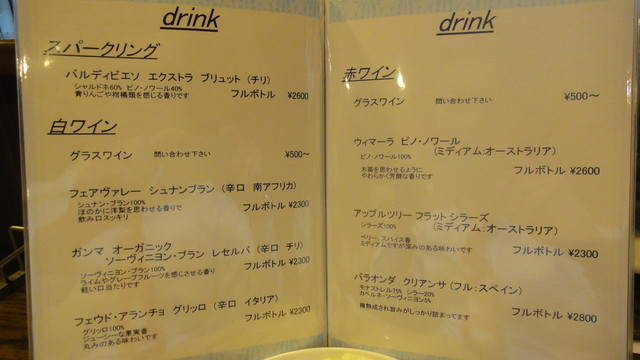 drink
スパークリング
バルディビエソ エクストラ ブリュット（チリ）
シャルドネ60% ピノ・ノワール40%
青りんごや柑橘類を感じる香りです
フルボトル ¥2600
白ワイン
グラスワイン 問い合わせ下さい ¥500～
フェアヴァレー シュナンブラン（辛口 南アフリカ）
シュナン・ブラン100%
ほのかに洋梨を思わせる香りで
飲み口スッキリ
フルボトル ¥2300
ガンマ オーガニック
ソーヴィニヨン・ブラン レセルバ（辛口 チリ）
ソーヴィニヨン・ブラン100%
ライムやグレープフルーツを感じさせる香り
軽い口当たりです
フルボトル ¥2300
フェウド・アランチョ グリッロ（辛口 イタリア）
グリッロ100%
ジューシーな果実香
丸みのある味わいです
フルボトル ¥2300
drink
赤ワイン
グラスワイン 問い合わせ下さい ¥500～
ヴィマーラ ピノ・ノワール
（ミディアム:オーストラリア）
ピノ・ノワール100%
木苺を思わせるように
やわらかく芳醇な香りです
フルボトル ¥2600
アップルツリー フラット シラーズ
（ミディアム:オーストラリア）
シラーズ100%
ベリー、スパイス香
ミディアムですが深みのある味わいです
フルボトル ¥2300
パラオンダ クリアンサ（フル:スペイン）
モナストレル75% シラー20%
カベルネ・ソーヴィニヨン5%
樽熟成され旨みがしっかり詰まってます
フルボトル ¥2800